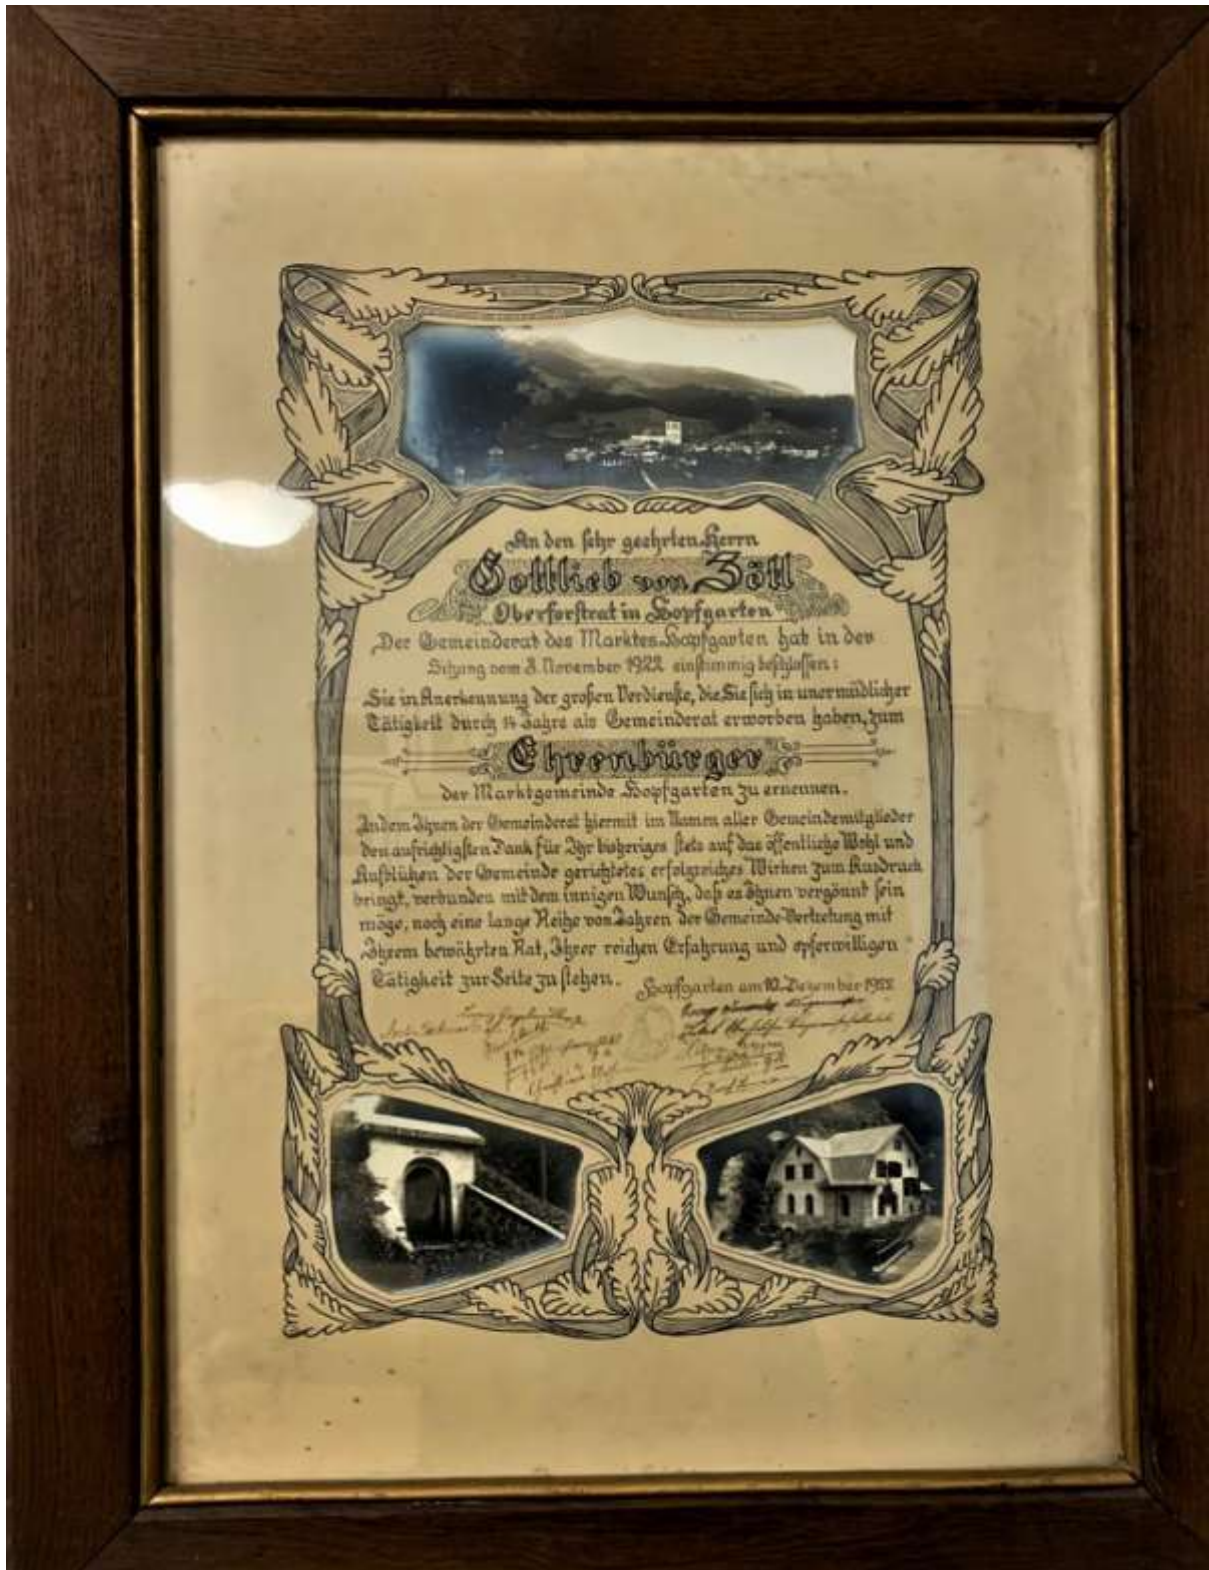 An den sehr geehrten Herrn
Gottlieb von Zötl
Oberforstrat in Hopfgarten
Der Gemeinderat des Marktes Hopfgarten hat in der
Sitzung vom 3. November 1922 einstimmig beschlossen:
Sie in Anerkennung der großen Verdienste, die Sie sich in unermüdlicher
Tätigkeit durch 14 Jahre als Gemeinderat erworben haben, zum
Ehrenbürger
der Marktgemeinde Hopfgarten zu ernennen.
Indem Ihnen der Gemeinderat hiermit im Namen aller Gemeindemitglieder
den aufrichtigsten Dank für Ihr bisheriges stets auf das öffentliche Wohl und
Aufblühen der Gemeinde gerichtetes erfolgreiches Wirken zum Ausdruck
bringt, verbunden mit dem innigen Wunsch, daß es Ihnen vergönnt sein
möge, noch eine lange Reihe von Jahren der Gemeinde-Vertretung mit
Ihrem bewährten Rat, Ihrer reichen Erfahrung und opferwilligen
Tätigkeit zur Seite zu stehen.
Hopfgarten am 10. Dezember 1922